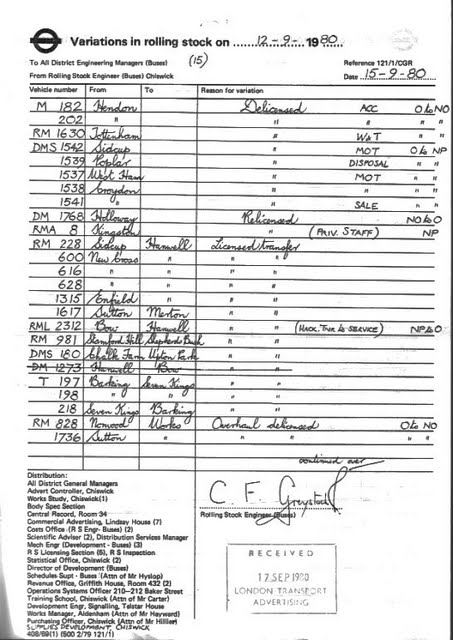 Variations in rolling stock on 12-9-1980
To All District Engineering Managers (Buses) (15) Reference 121/1/CGR
From Rolling Stock Engineer (Buses) Chiswick Date 15-9-80
Vehicle number From To Reason for variation
M 182 Hendon Delicensed ACC O to NO
202 " " " " "
RM 1630 Tottenham " W&T " "
DMS 1542 Sidcup " MOT O to NP
1539 Poplar " DISPOSAL " "
1537 West Ham " MOT " "
1538 Croydon " " " "
1541 " " SALE " "
DM 1768 Holloway Relicensed NO to O
RMA 8 Kingston " (PRIV. STAFF) NP
RM 228 Sidcup Hanwell Licensed transfer
600 New Cross " " "
616 " " " "
628 " " " "
1315 Enfield " " "
1617 Sutton Merton " "
RML 2312 Bow Hanwell " " (MECH. TNR to SERVICE) NP to O
RM 981 Stamford Hill Shepherds Bush " "
DMS 180 Chalk Farm Upton Park " "
DM 1273 Hanwell Bow " "
T 197 Barking Seven Kings " "
198 " " " "
218 Seven Kings Barking " "
RM 828 Norwood Works Overhaul delicensed O to NO
1736 Sutton " " " " "
continued over
Distribution:
All District General Managers
Advert Controller, Chiswick
Works Study, Chiswick(1)
Body Spec Section
Central Record, Room 34
Commercial Advertising, Lindsay House (7)
Costs Office (R S Engr- Buses) (2)
Scientific Adviser (2), Distribution Services Manager
Mech Engr (Development - Buses) (3)
R S Licensing Section (5), R S Inspection
Statistical Office, Chiswick (2)
Director of Development (Buses)
Schedules Supt - Buses (Attn of Mr Hyslop)
Revenue Office, Griffith House, Room 432 (2)
Operations Systems Officer 210-212 Baker Street
Training School, Chiswick (Attn of Mr Carter)
Development Engr, Signalling, Telstar House
Works Manager, Aldenham (Attn of Mr Hayward)
Purchasing Officer, Chiswick (Attn of Mr Hillier)
SUPPLIES DEVELOPMENT, CHISWICK
408/69(1) (500 2/79 121/1)
C. F. Greystock
Rolling Stock Engineer (Buses)
RECEIVED
17 SEP 1980
LONDON TRANSPORT
ADVERTISING